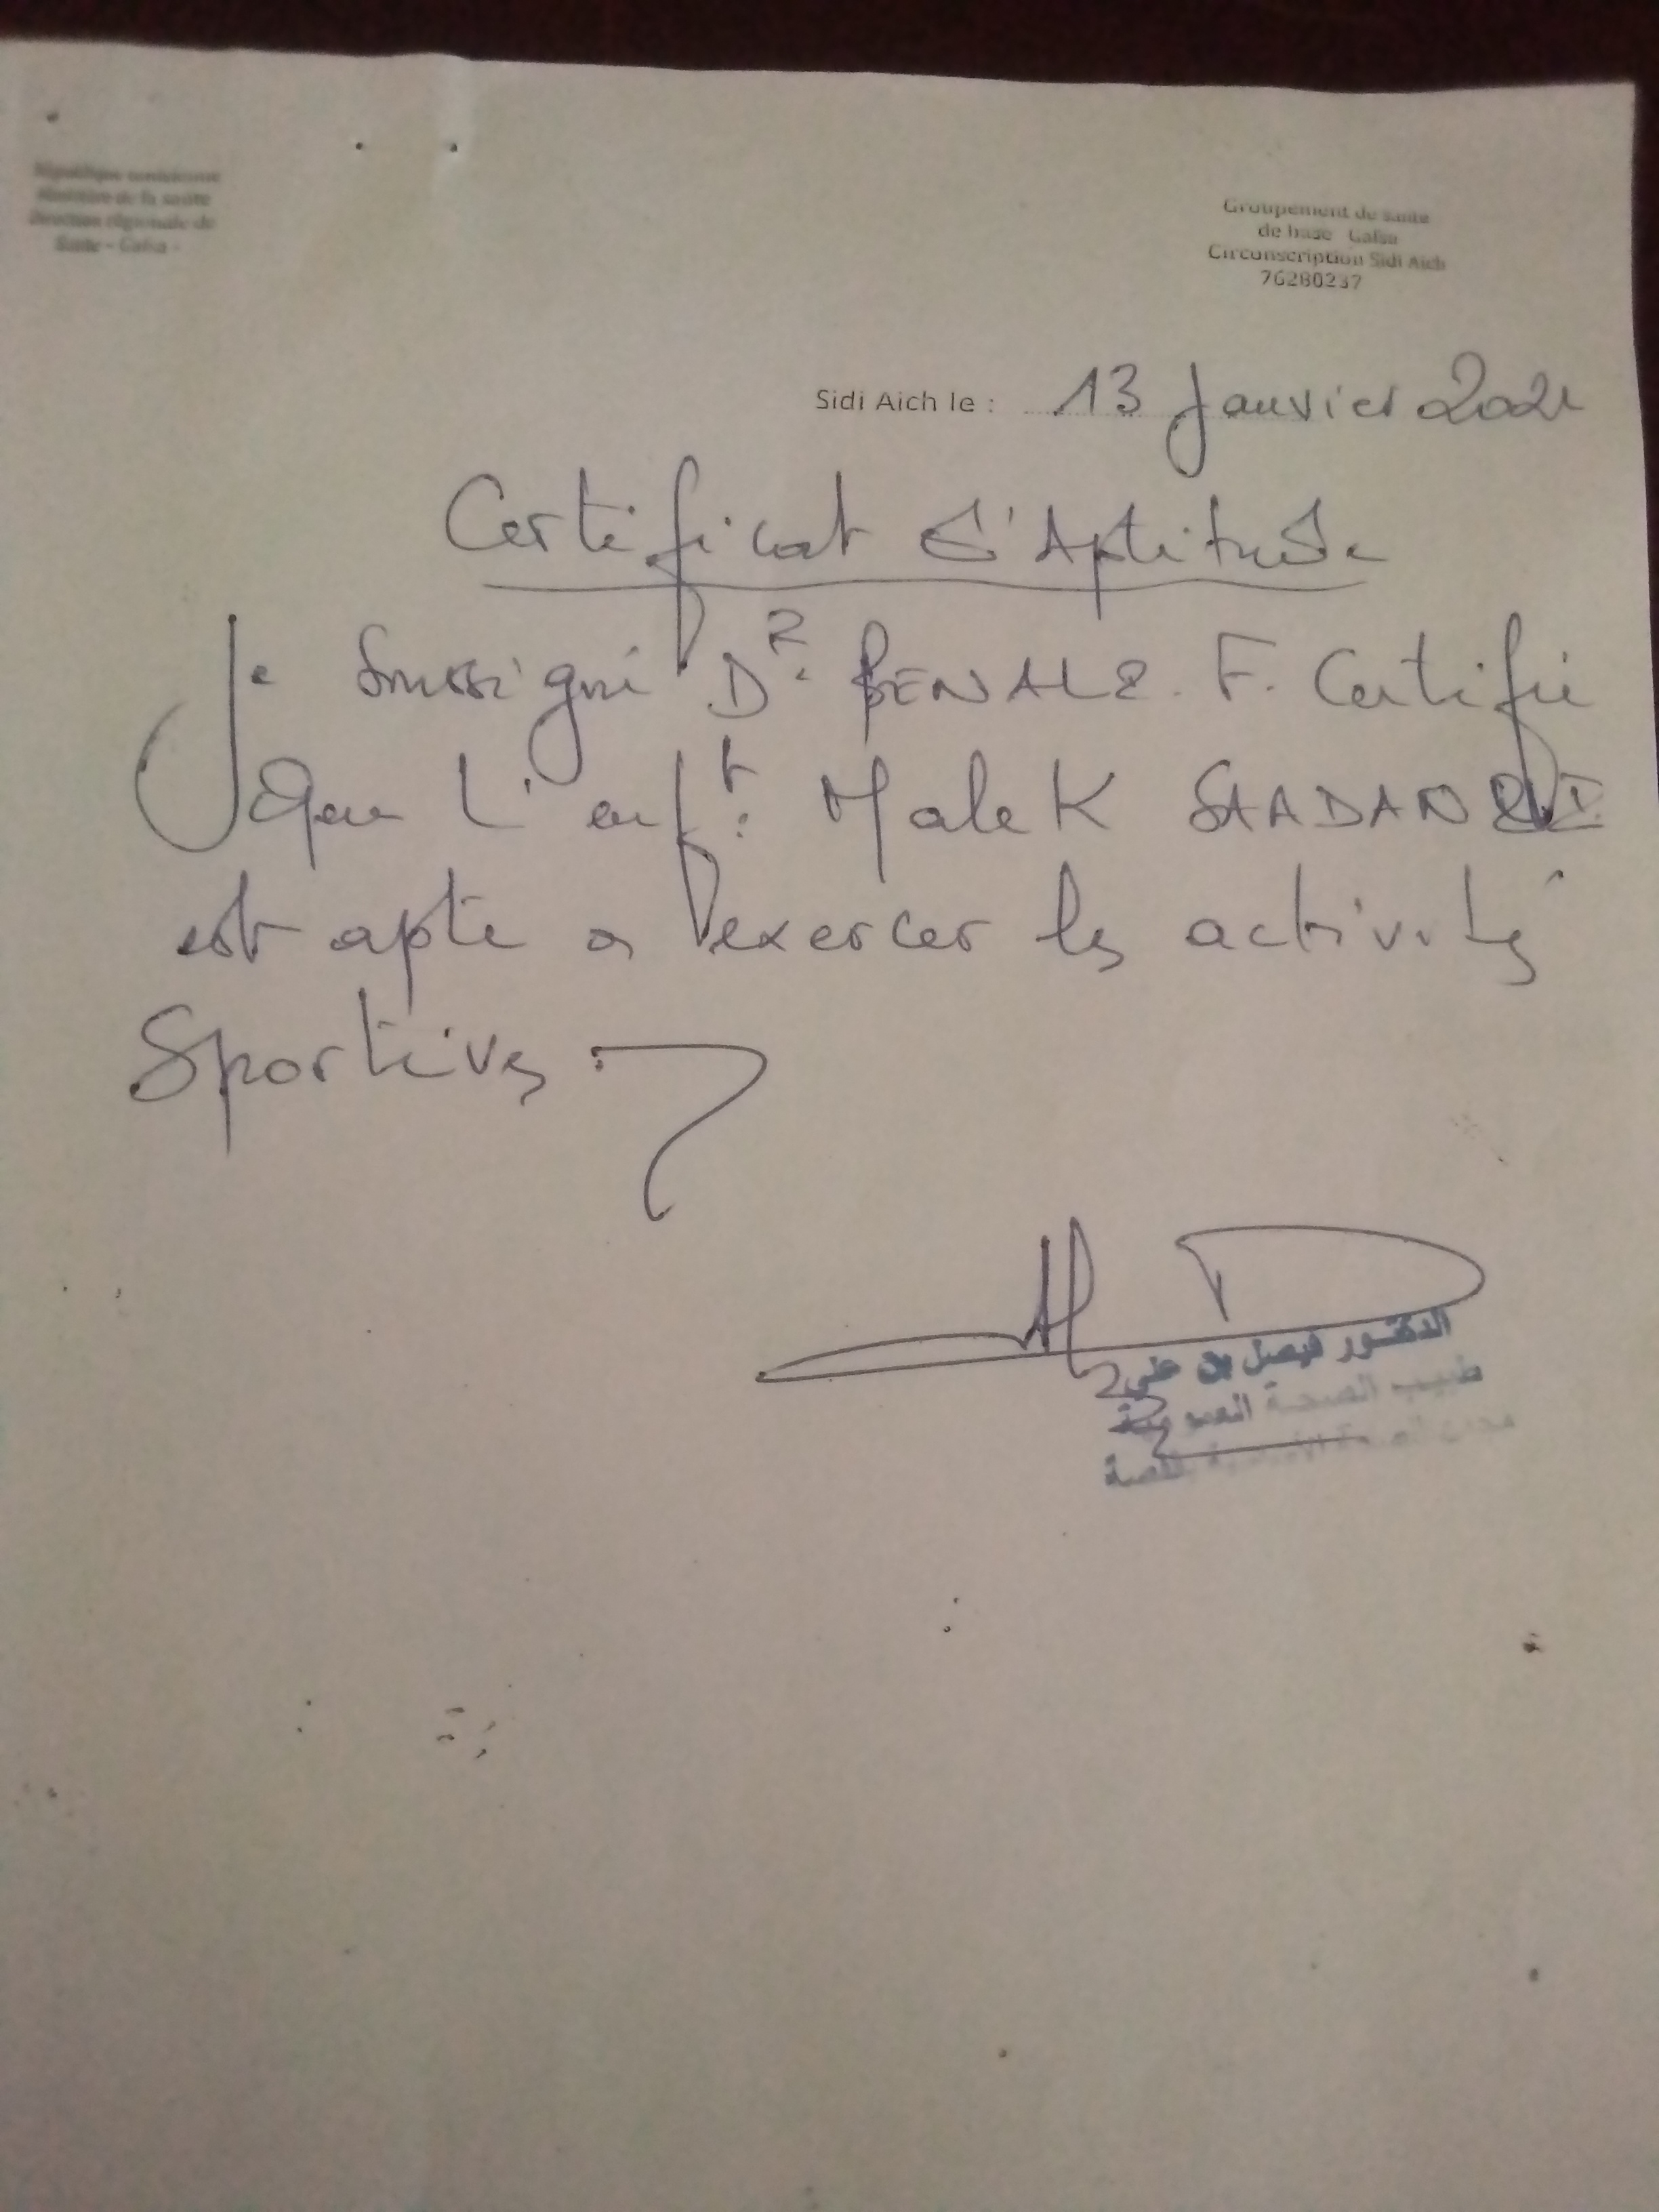 République tunisienne
Ministère de la santé
Direction régionale de
Santé - Gafsa -
Groupement de santé
de base Gafsa
Circonscription Sidi Aich
76280237
Sidi Aich le : 13 Janvier 2021
Certificat d'Aptitude
Je soussigné Dr. BENALI. F. Certifie
Que l'enft: Malek SAADANI
est apte a exercer les activités
Sportives.
الدكتور فيصل بن علي
طبيب الصحة العمومية
بقفصة